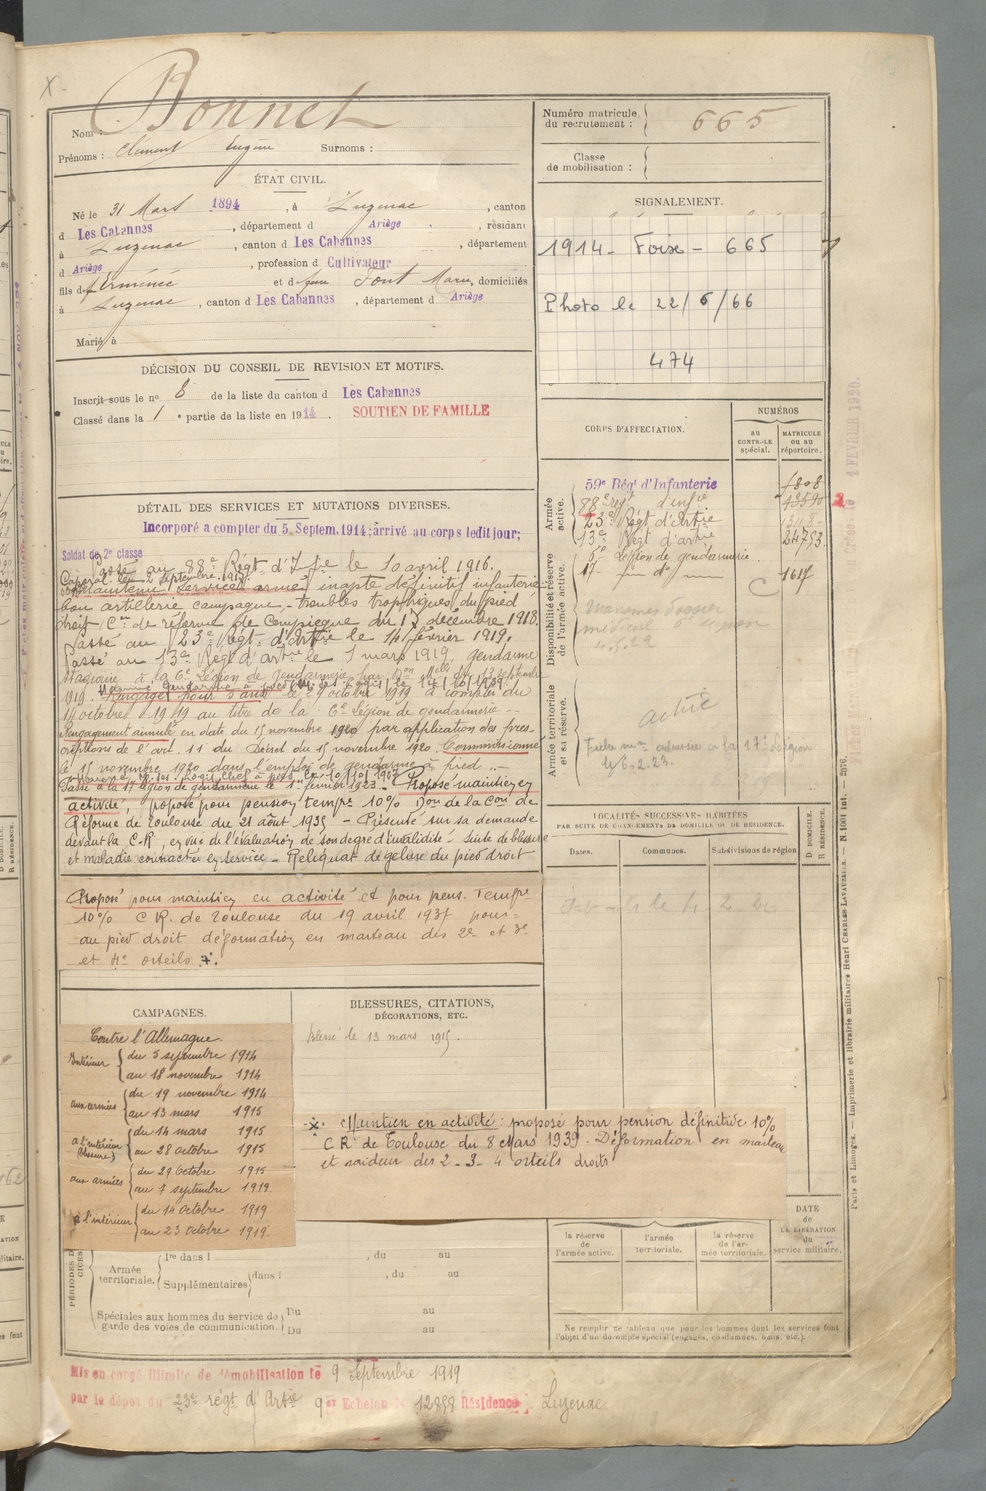 X
Bonnet
Nom :
Prénoms : Clément Eugène Surnoms :
ÉTAT CIVIL.
Né le 31 Mars 1894, à Luzenac, canton
d Les Cabannes, département d Ariège, résidant
à Luzenac, canton d Les Cabannes, département
d Ariège, profession d Cultivateur
fils de et de Font Marie, domiciliés
à Luzenac, canton d Les Cabannes, département d Ariège
Marié à
DÉCISION DU CONSEIL DE REVISION ET MOTIFS.
Inscrit sous le n° 6 de la liste du canton d Les Cabannes
Classé dans la 1e partie de la liste en 1914. SOUTIEN DE FAMILLE
DÉTAIL DES SERVICES ET MUTATIONS DIVERSES.
Incorporé a compter du 5 Septem. 1914; arrivé au corps ledit jour;
Soldat de 2e classe
Passé au 88e Régt. d'Infie le 10 avril 1916.
Caporal le 2 septembre
Maintenu service armé inapte définitif infanterie
bon artillerie campagne - troubles trophiques du pied
droit, Con de réforme de Compiègne du 17 décembre 1918.
Passé au 23e Régt. d'Artie le 14 février 1919.
Passé au 13e Régt d'artie le 1 mars 1919. Gendarme
stagiaire à la 6e Légion de Gendarmerie septembre
1919. Rengagé pour 3 ans le 29 octobre 1919 à compter du
14 octobre 1919 au titre de la 6e Légion de gendarmerie --
Rengagement annulé en date du 15 novembre 1920 par application des pres-
criptions de l'art. 11 du Décret du 15 novembre 1920. Commissionné
le 15 novembre 1920 dans l'emploi de gendarme à pied
Passé à la 17e légion de gendarmerie le 1er février 1923 - Proposé maintien en
activité, proposé pour pension tempre 10% Don de la Con de
Réforme de Toulouse du 21 août 1935 - Présenté sur sa demande
devant la C.R, en vue de l'évaluation de son degré d'invalidité - Suite de blessure
et maladie contractée en service - Reliquat de gelure du pied droit
Proposé pour maintien en activité et pour pens. Tempre
10% C.R. de Toulouse du 19 avril 1937 pour =
au pied droit déformation en marteau des 2e et 3e
et 4e orteils
CAMPAGNES.
Contre l'Allemagne.
Intérieur { du 5 septembre 1914
au 18 novembre 1914
aux armées { du 19 novembre 1914
au 13 mars 1915
à l'intérieur (blessure) { du 14 mars 1915
au 28 octobre 1915
aux armées { du 29 octobre 1915
au 7 septembre 1919
à l'intérieur { du 14 octobre 1919
au 23 octobre 1919.
BLESSURES, CITATIONS,
DÉCORATIONS, ETC.
Blessé le 13 mars 1915.
Maintien en activité : proposé pour pension définitive 10%
C R de Toulouse du 8 Mars 1939 - Déformation en marteau
et raideur des 2 - 3 - 4 orteils droits
Armée
territoriale.
1re dans l , du au
Supplémentaires dans l , du au
Spéciales aux hommes du service de
garde des voies de communication.
Du au
Du au
Mis en congé illimité de démobilisation le 9 Septembre 1919
par le dépôt du 23e régt d'Artie 9er Echelon N° 12858 Résidence Luzenac
Numéro matricule
du recrutement :
665
Classe
de mobilisation :
SIGNALEMENT.
1914 - Foix - 665
Photo le 22/6/66
474
CORPS D'AFFECTATION.
NUMÉROS
au
CONTRÔLE
spécial.
MATRICULE
ou au
répertoire.
Armée
active.
59e Régt d'Infanterie
88e regt d'infie
23e Régt d'Artie
13e Régt d'artie 24753
Disponibilité et réserve
de l'armée active.
6e légion de gendarmerie
17e
C
Armée territoriale
et sa réserve.
activé
LOCALITÉS SUCCESSIVES HABITÉES
PAR SUITE DE CHANGEMENTS DE DOMICILE OU DE RÉSIDENCE.
Dates.
Communes.
Subdivisions de région
D DOMICILE.
R RÉSIDENCE.
la réserve
de
l'armée active.
l'armée
territoriale.
la réserve
de l'ar-
mée territoriale.
DATE
de
LA LIBÉRATION
du
service militaire.
Ne remplir ce tableau que pour les hommes dont les services font
l'objet d'un décompte spécial (engagés, condamnés, omis, etc.).
Paris et Limoges. — Imprimerie et librairie militaires Henri CHARLES-LAVAUZELLE. — N. 1001 int. — 2916.
4 FÉVRIER 1920.